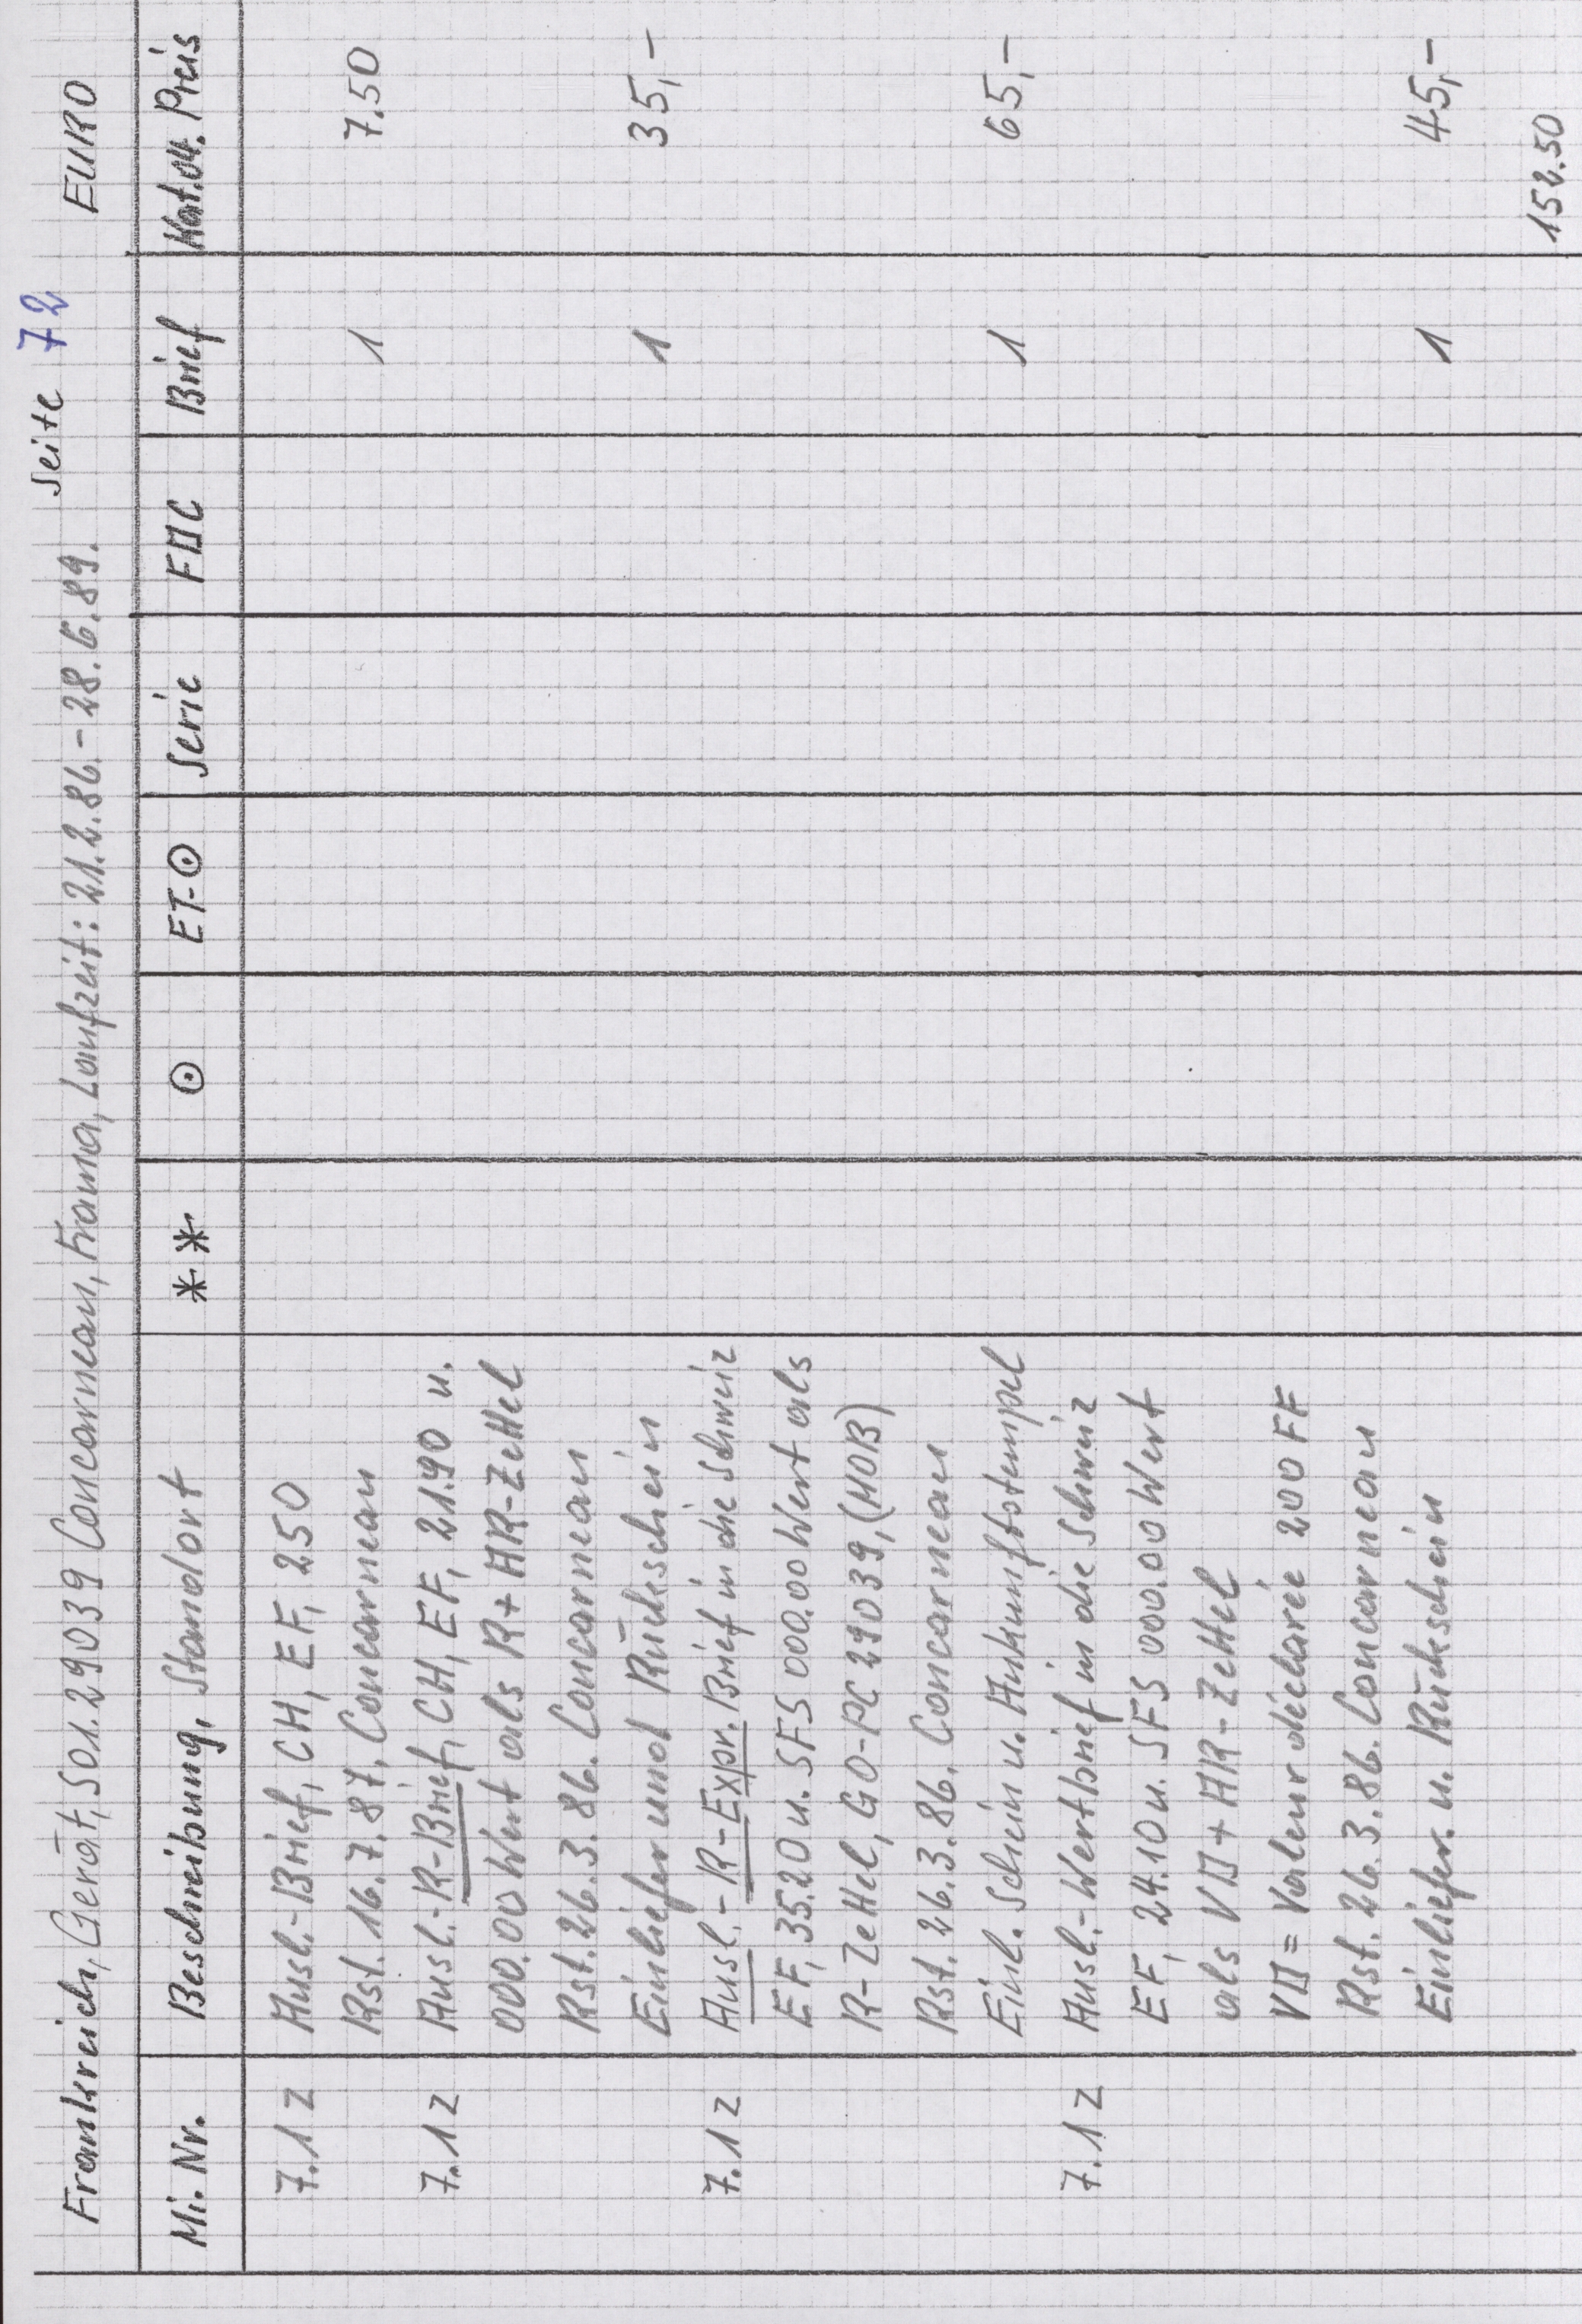 Seite 72
Frankreich, Gerät, 501.29039 Concarneau, Frama, Laufzeit: 21.2.86.-28.6.89. EURO
Mi. Nr. Beschreibung, Standort ** ⊙ ET-⊙ Serie FDC Brief Kat.04. Preis
7.1 Z Ausl.-Brief, CH, EF, 250
Rst. 16.7.87, Concarneau 1 7.50
7.1 Z Ausl.-R-Brief, CH, EF, 21.90 u.
000.00 Wert als R+AR-Zettel
Rst. 26.3.86. Concarneau
Einliefer und Rückschein 1 35,-
7.1 Z Ausl.-R-Expr. Brief in die Schweiz
EF, 35.20 u. SFS 000.00 Wert als
R-Zettel, GO-PC 29039, (MOB)
Rst. 26.3.86. Concarneau
Einl. Schein u. Ankunftstempel 1 65,-
7.1 Z Ausl.-Wertbrief in die Schweiz
EF, 24.10 u. SFS 000.00 Wert
als VD+AR-Zettel
VD = Valeur déclarée 200 FF
Rst. 26.3.86. Concarneau
Einliefer. u. Rückschein 1 45,-
152.50